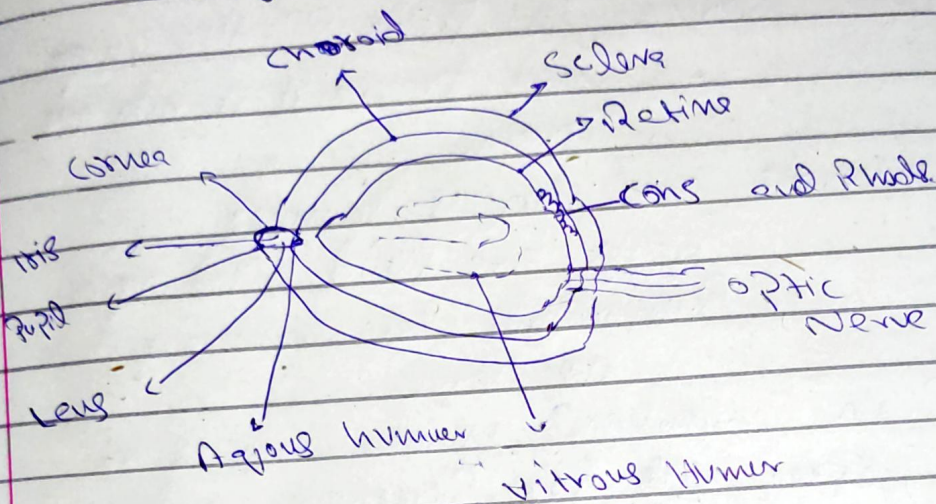 Choroid
Sclera
Retine
Cornea
Cons and Rhods.
Iris
Pupil
Optic
Nerve
Lens
Aqious humuer
Vitrous Humer